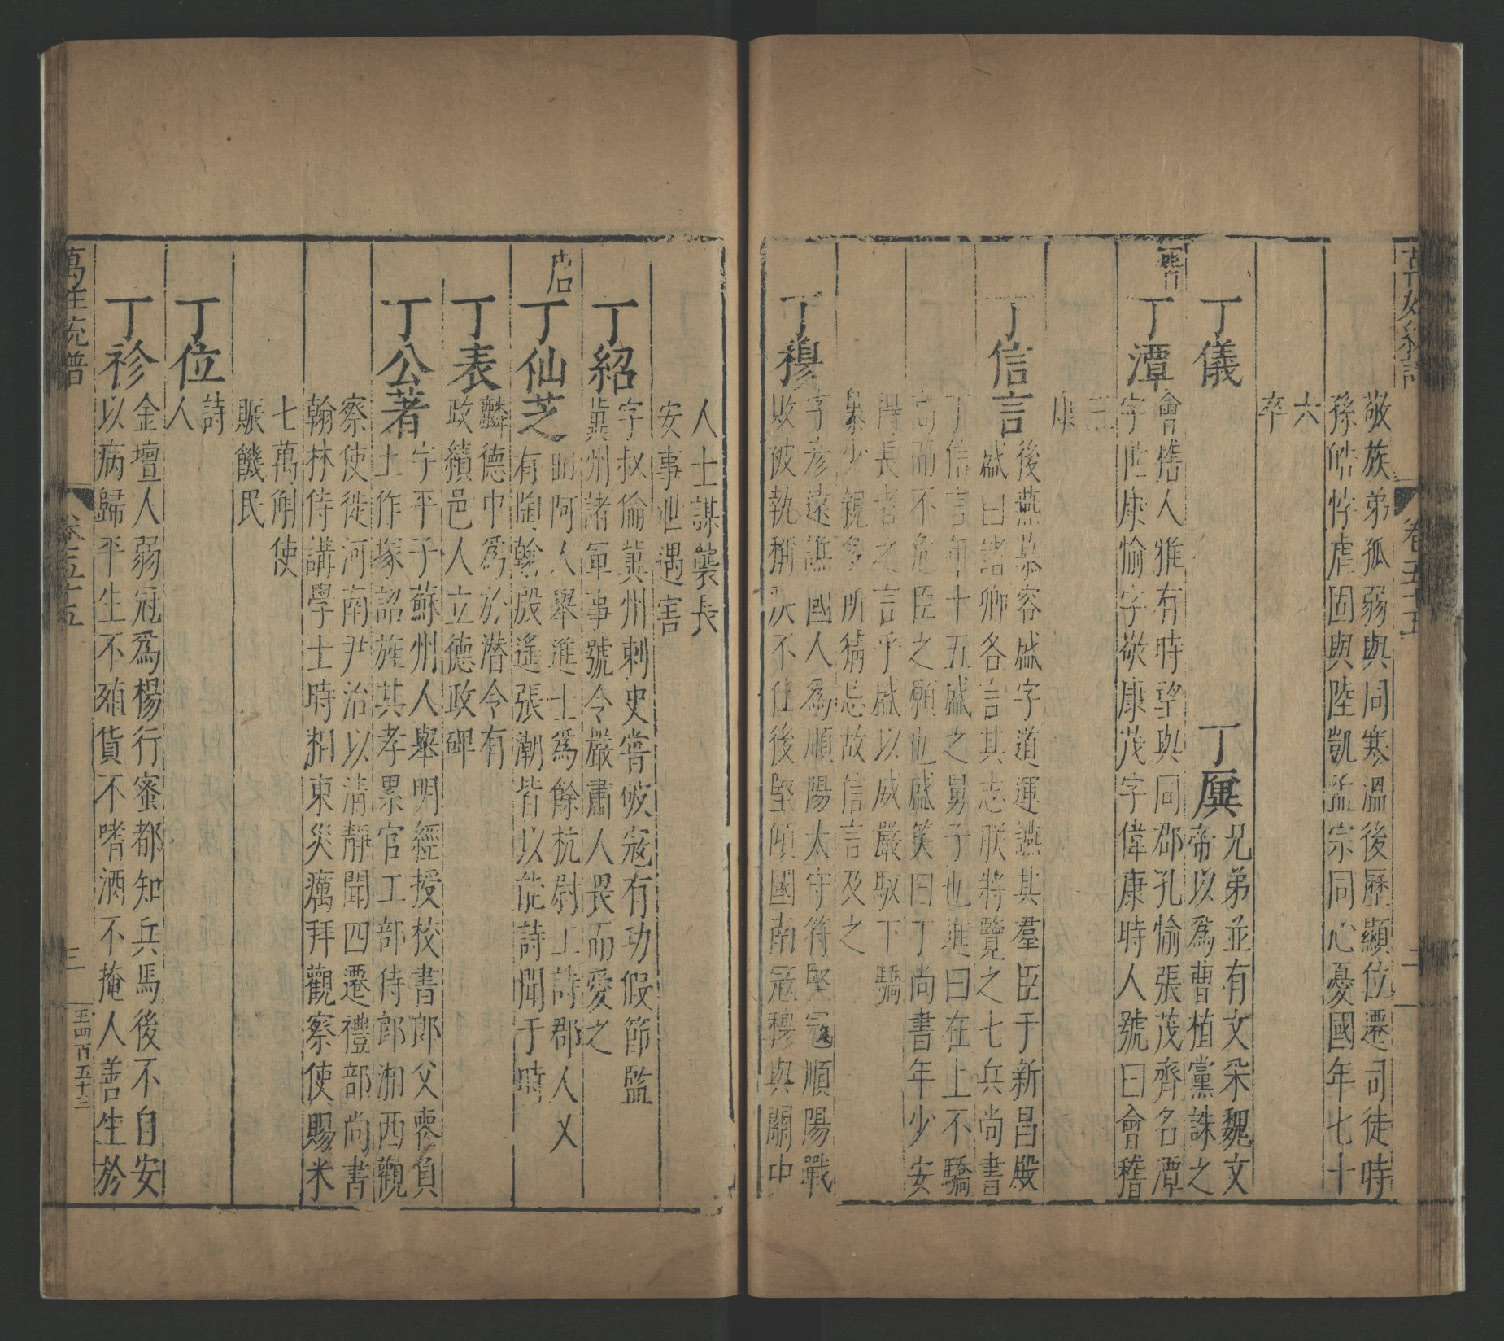 敬族弟孤弱與同寒溫後歷顯位遷司徒時
孫皓悖虐固與陸凱孟宗同心憂國年七十
六
卒
丁儀
丁廙
兄弟並有文采魏文
帝以爲曹植黨誅之
晉
丁潭
會稽人雅有時望與同郡孔愉張茂齊名潭
字世康愉字敬康茂字偉康時人號曰會稽
三
康
丁信言
後燕慕容盛字道運燕其羣臣于新昌殿
盛曰諸卿各言其志朕將覽之七兵尚書
丁信言年十五盛之舅子也進曰在上不驕
高而不危臣之願也盛笑曰丁尚書年少安
得長者之言乎盛以威嚴馭下驕
暴少親多所猜忌故信言及之
丁穆
字彥遠譙國人爲順陽太守符堅寇順陽戰
敗被執稱疾不仕後堅傾國南寇穆與關中
人士謀襲長
安事泄遇害
丁紹
字叔倫冀州刺史嘗破寇有功假節監
冀州諸軍事號令嚴肅人畏而愛之
唐
丁仙芝
曲阿人舉進士爲餘杭尉工詩郡人又
有陶翰殷遙張潮皆以能詩聞于時
丁表
麟德中爲於潜令有
政績邑人立德政碑
丁公著
字平子蘇州人舉明經授校書郎父喪負
土作塚詔旌其孝累官工部侍郎湘西觀
察使徙河南尹治以清靜聞四遷禮部尚書
翰林侍講學士時湘東災癘拜觀察使賜米
七萬斛使
賑饑民
丁位
詩
人
丁袗
金壇人弱冠爲楊行蜜都知兵馬後不自安
以病歸平生不殖貨不嗜酒不掩人善生於
萬姓統譜
卷五十五
三